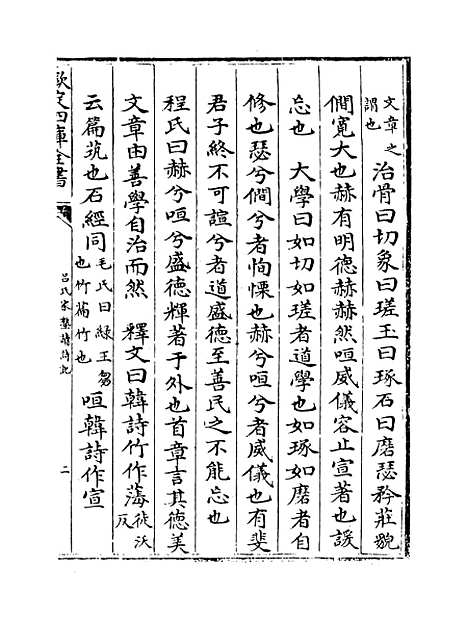 文章之謂也 治骨曰切象曰瑳玉曰琢石曰磨瑟矜莊貌
僩寛大也赫有明德赫赫然咺威儀容止宣著也諼
忘也 大學曰如切如瑳者道學也如琢如磨者自
修也瑟兮僩兮者恂慄也赫兮咺兮者威儀也有斐
君子終不可諠兮者道盛德至善民之不能忘也
程氏曰赫兮咺兮盛德輝著于外也首章言其德美
文章由善學自治而然 釋文曰韓詩竹作薄徒沃反
云篇茿也石經同毛氏曰綠王芻也竹篇竹也 咺韓詩作宣
欽定四庫全書
呂氏家塾讀詩記
二